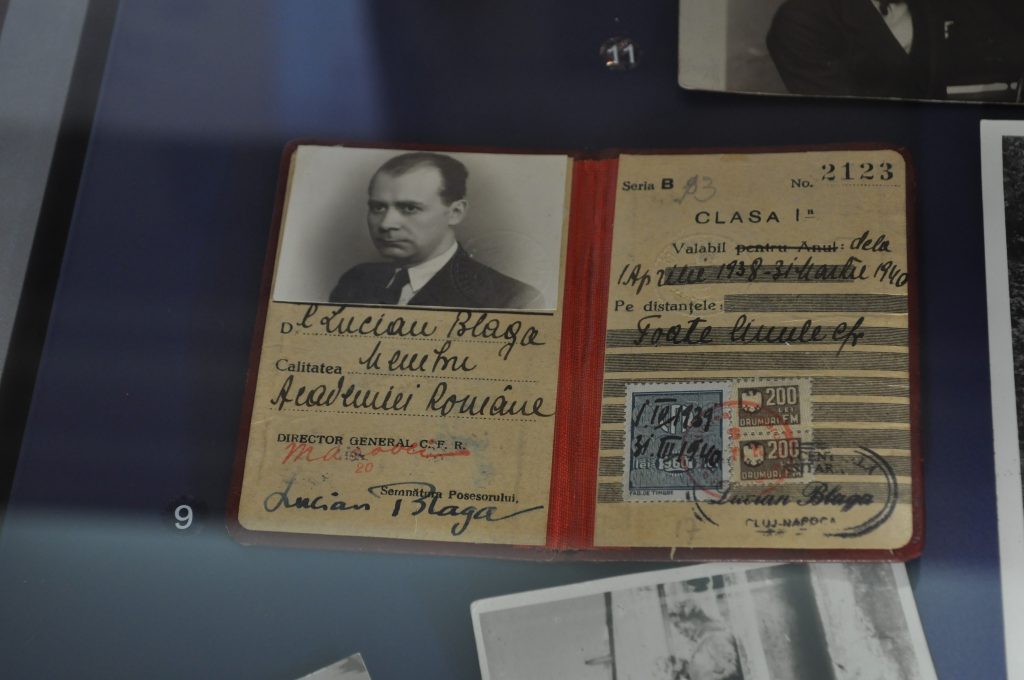 11
9
Dl Lucian Blaga
Calitatea Membru
Academiei Române
DIRECTOR GENERAL C. F. R.
20
Semnătura Posesorului,
Lucian Blaga
Seria B 93
No. 2123
CLASA Iª
Valabil pentru Anul: dela
1 Aprilie 1938-31 Martie 1940
Pe distanțele:
Toate liniile cfr
1 IV 1939
31 III 1940
LEI
FAB. DE TIMBRE
200
LEI
DRUMURI FM
200
DRUMURI FM
Lucian Blaga
CLUJ-NAPOCA
17